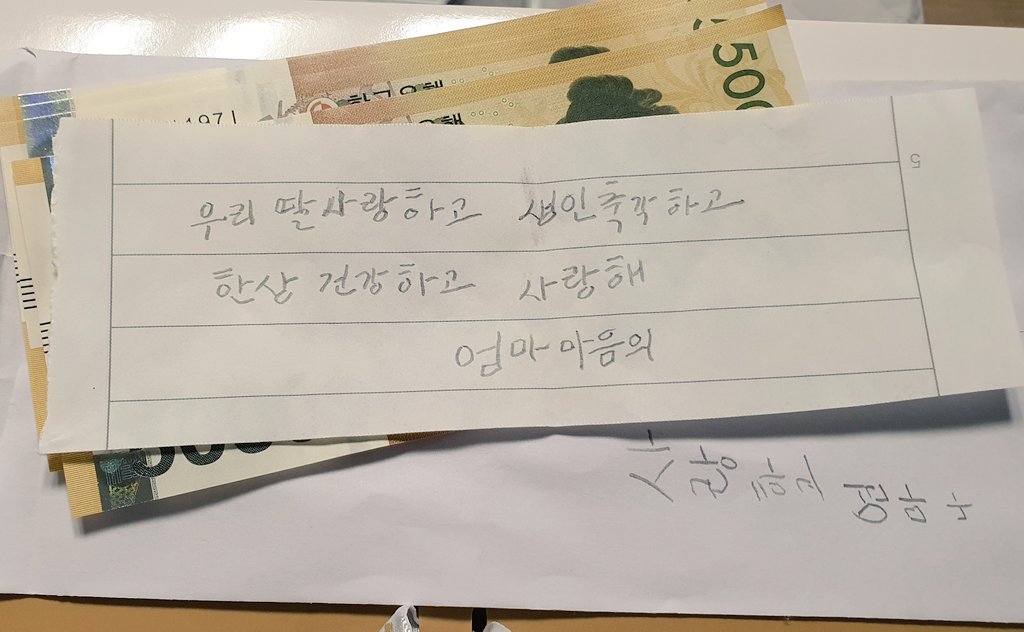 500
한국은행
1971
5
우리 딸사랑하고 생인축각하고
한상 건강하고 사랑해
엄마 마음의
사랑하고